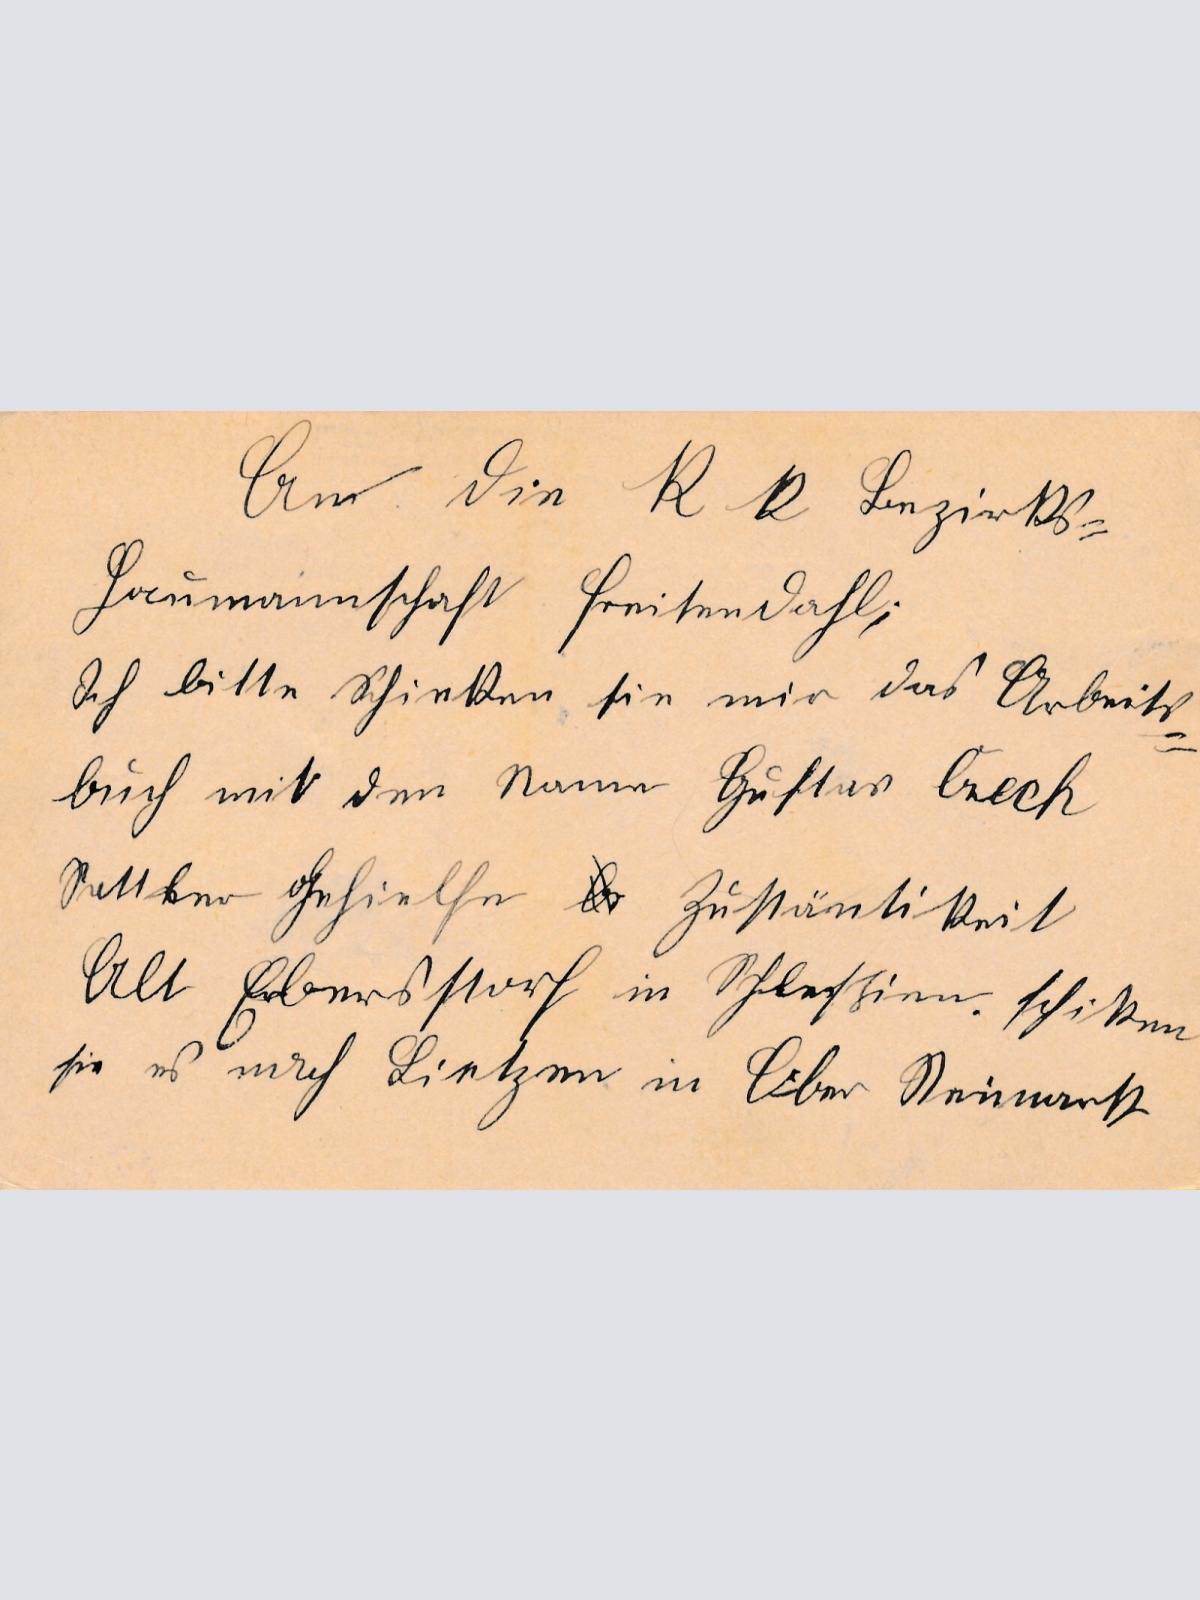 An die K K Bezirks=
Haumannschaft Freitendahl;
Ich bitte Schieken sie mir das Arbeits=
buch mit den Name Gustav Czech
Sattker Gehielfe Zustäntikeit
Alt Erbersstorf in Schlessien. schiken
sie es nach Lietzen in Ober Steimarkt